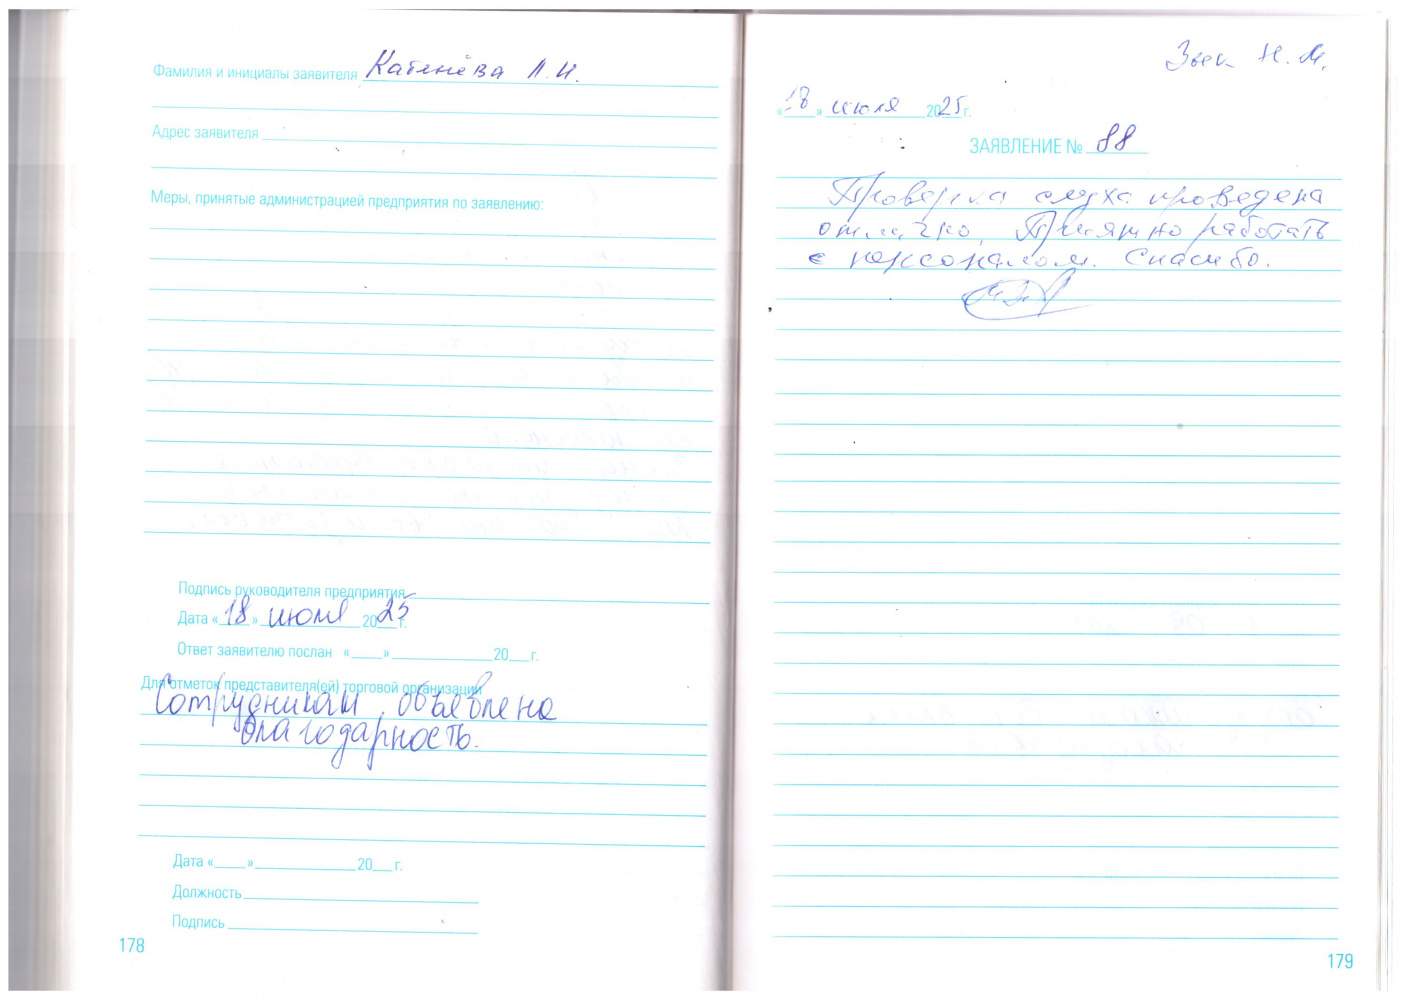 Фамилия и инициалы заявителя Катенёва Л.И.
Адрес заявителя
Меры, принятые администрацией предприятия по заявлению:
Подпись руководителя предприятия
Дата «18» июля 2025 г.
Ответ заявителю послан «____» ____________ 20___г.
Для отметок представителя(ей) торговой организации
Сотрудникам объявлена
благодарность.
Дата «____» ____________ 20___г.
Должность
Подпись
178
Н. М.
«18» июля 2025 г.
ЗАЯВЛЕНИЕ № 88
Проверка слуха проведена
отлично, Приятно работать
с персоналом. Спасибо.
179